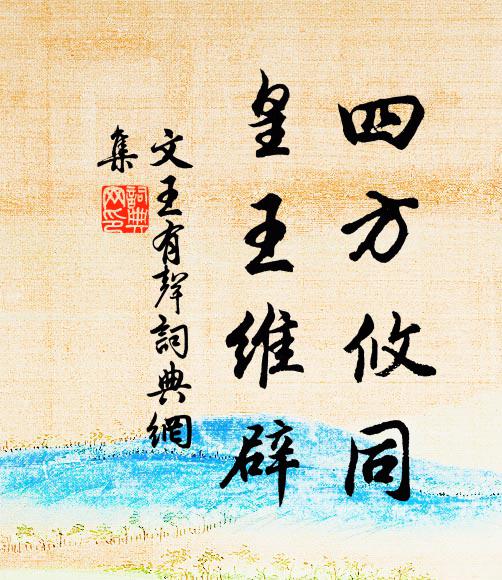 四方攸同
皇王維辟
文王有聲詞典網
集
詞典
网印